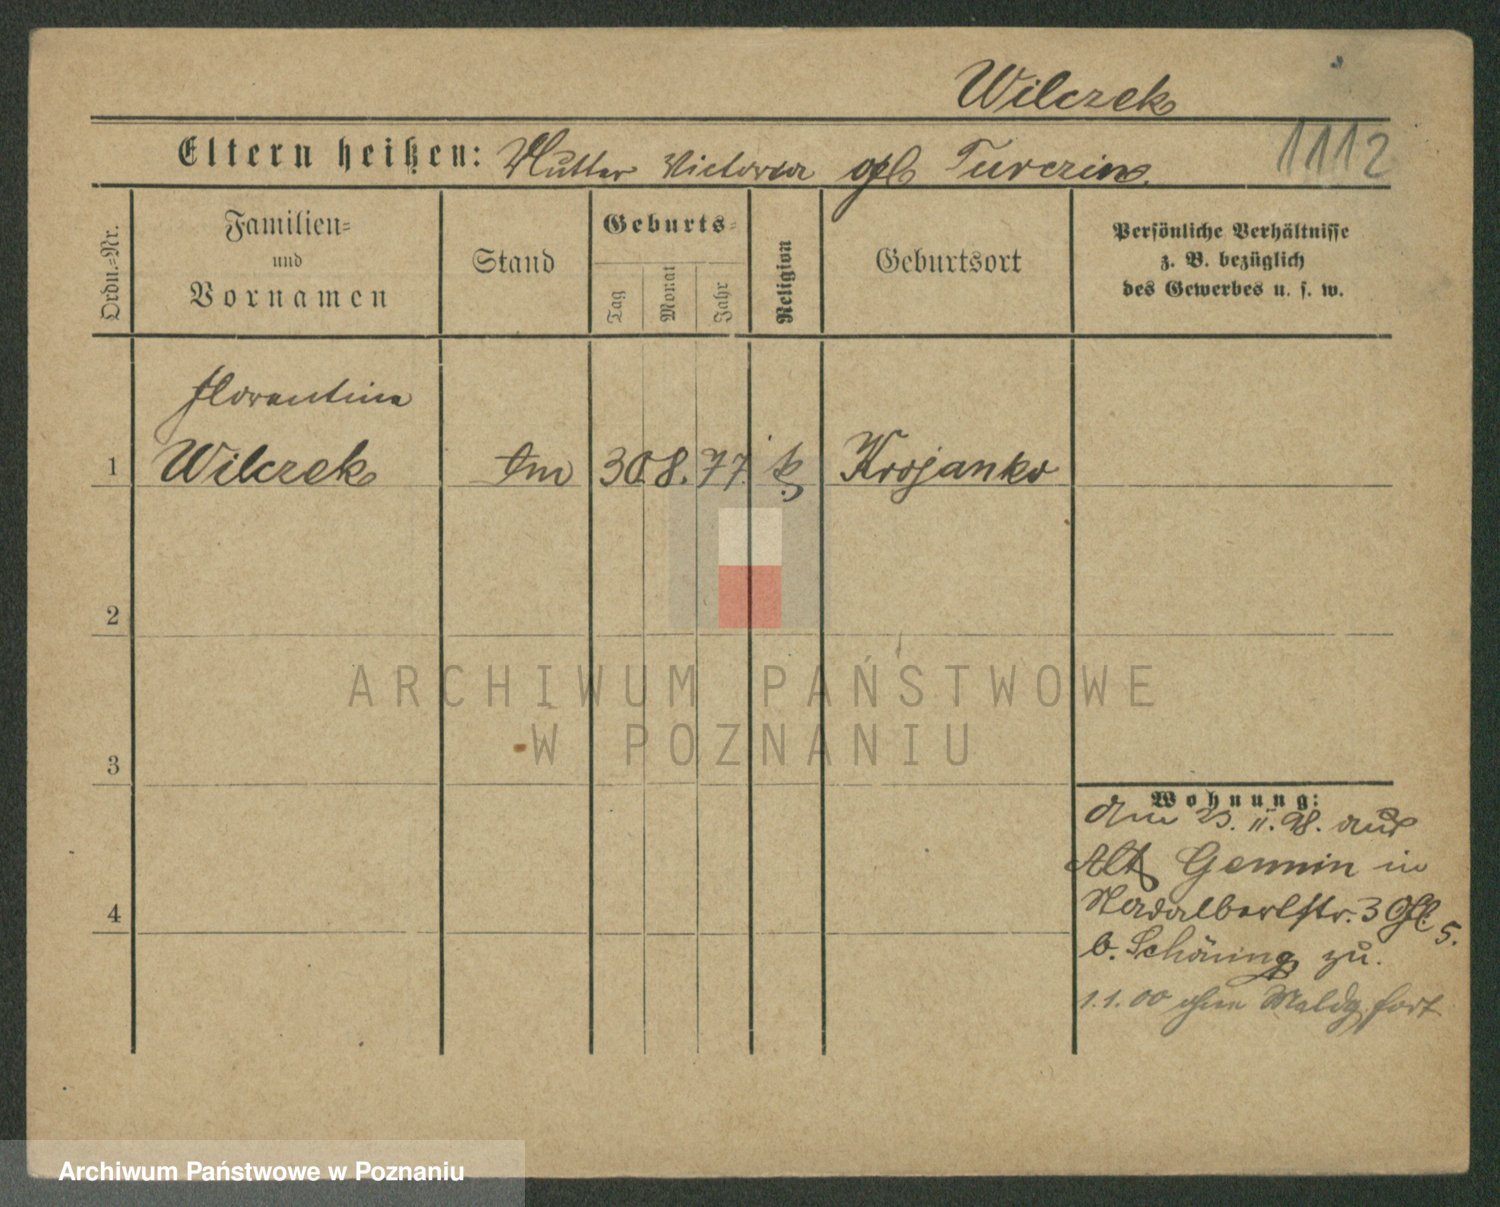 Wilczek
1112
Eltern heißen: Mutter Victoria geb Turczin.
Ordn.-Nr.
Familien-
und
Vornamen
Stand
Geburts-
Tag
Monat
Jahr
Religion
Geburtsort
Persönliche Verhältnisse
z. B. bezüglich
des Gewerbes u. s. w.
Florentine
1 Wilczek 30. 8. 77. k. Krojanke
2
ARCHIWUM PAŃSTWOWE
W POZNANIU
3
Wohnung:
Am 23. 11. 98. aus
Alt Gennin in
Nadalbertstr. 3 Gfl. 5.
b. Schöning zu.
1.1.00 ohne Meldg. fort
4
Archiwum Państwowe w Poznaniu